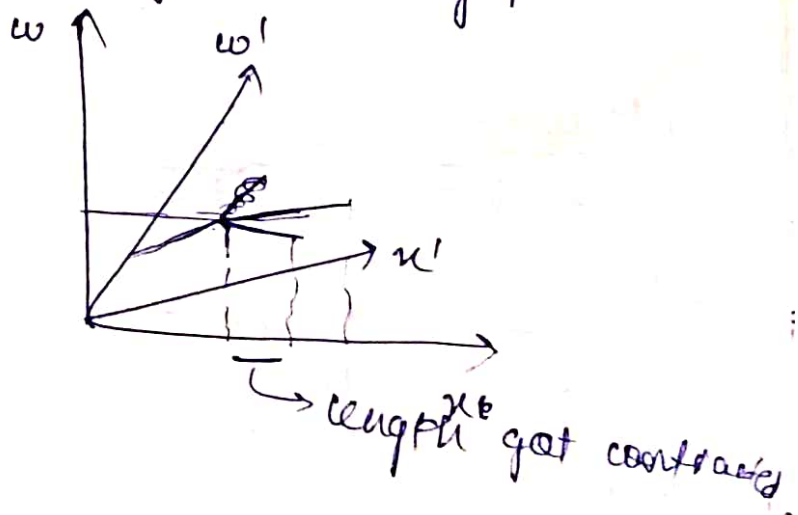 w
w'
x'
length got contracted